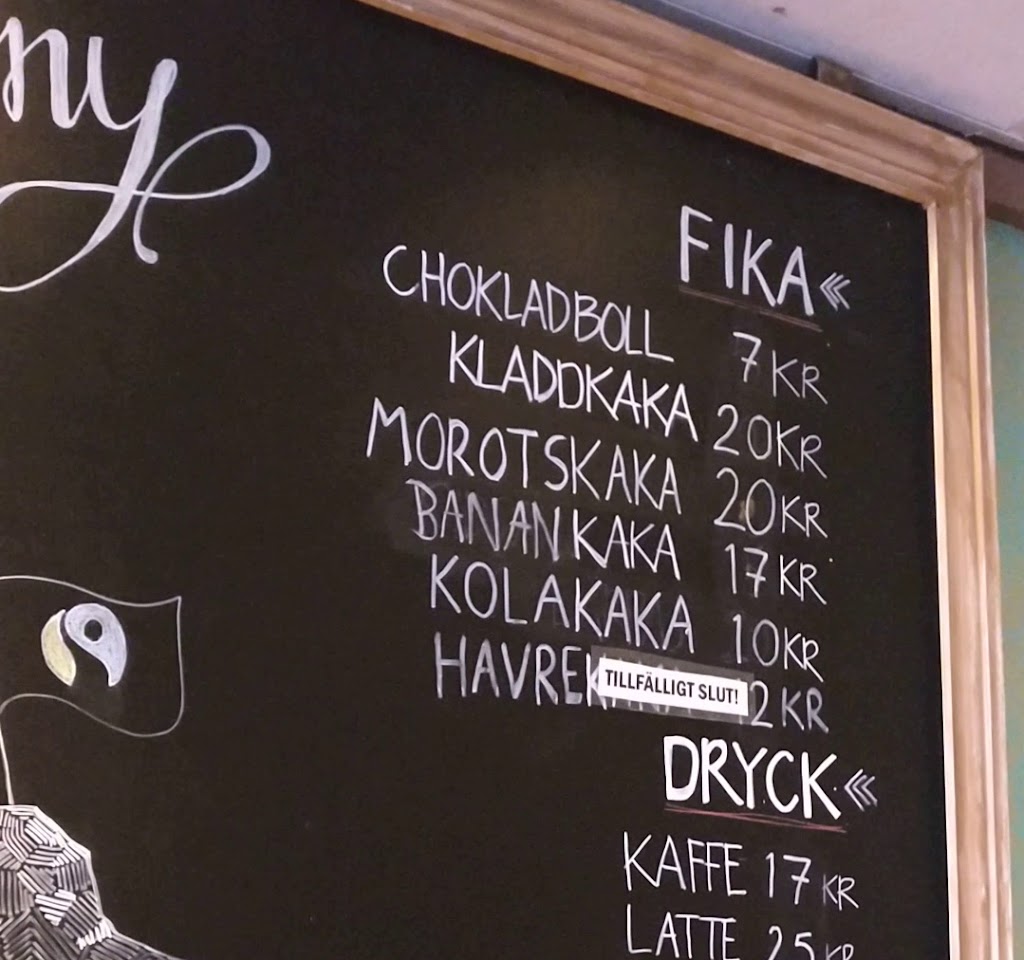 ny
FIKA
CHOKLADBOLL 7 KR
KLADDKAKA 20 KR
MOROTSKAKA 20 KR
BANANKAKA 17 KR
KOLAKAKA 10 KR
HAVREKAKA 12 KR
TILLFÄLLIGT SLUT!
DRYCK
KAFFE 17 KR
LATTE 25 KR